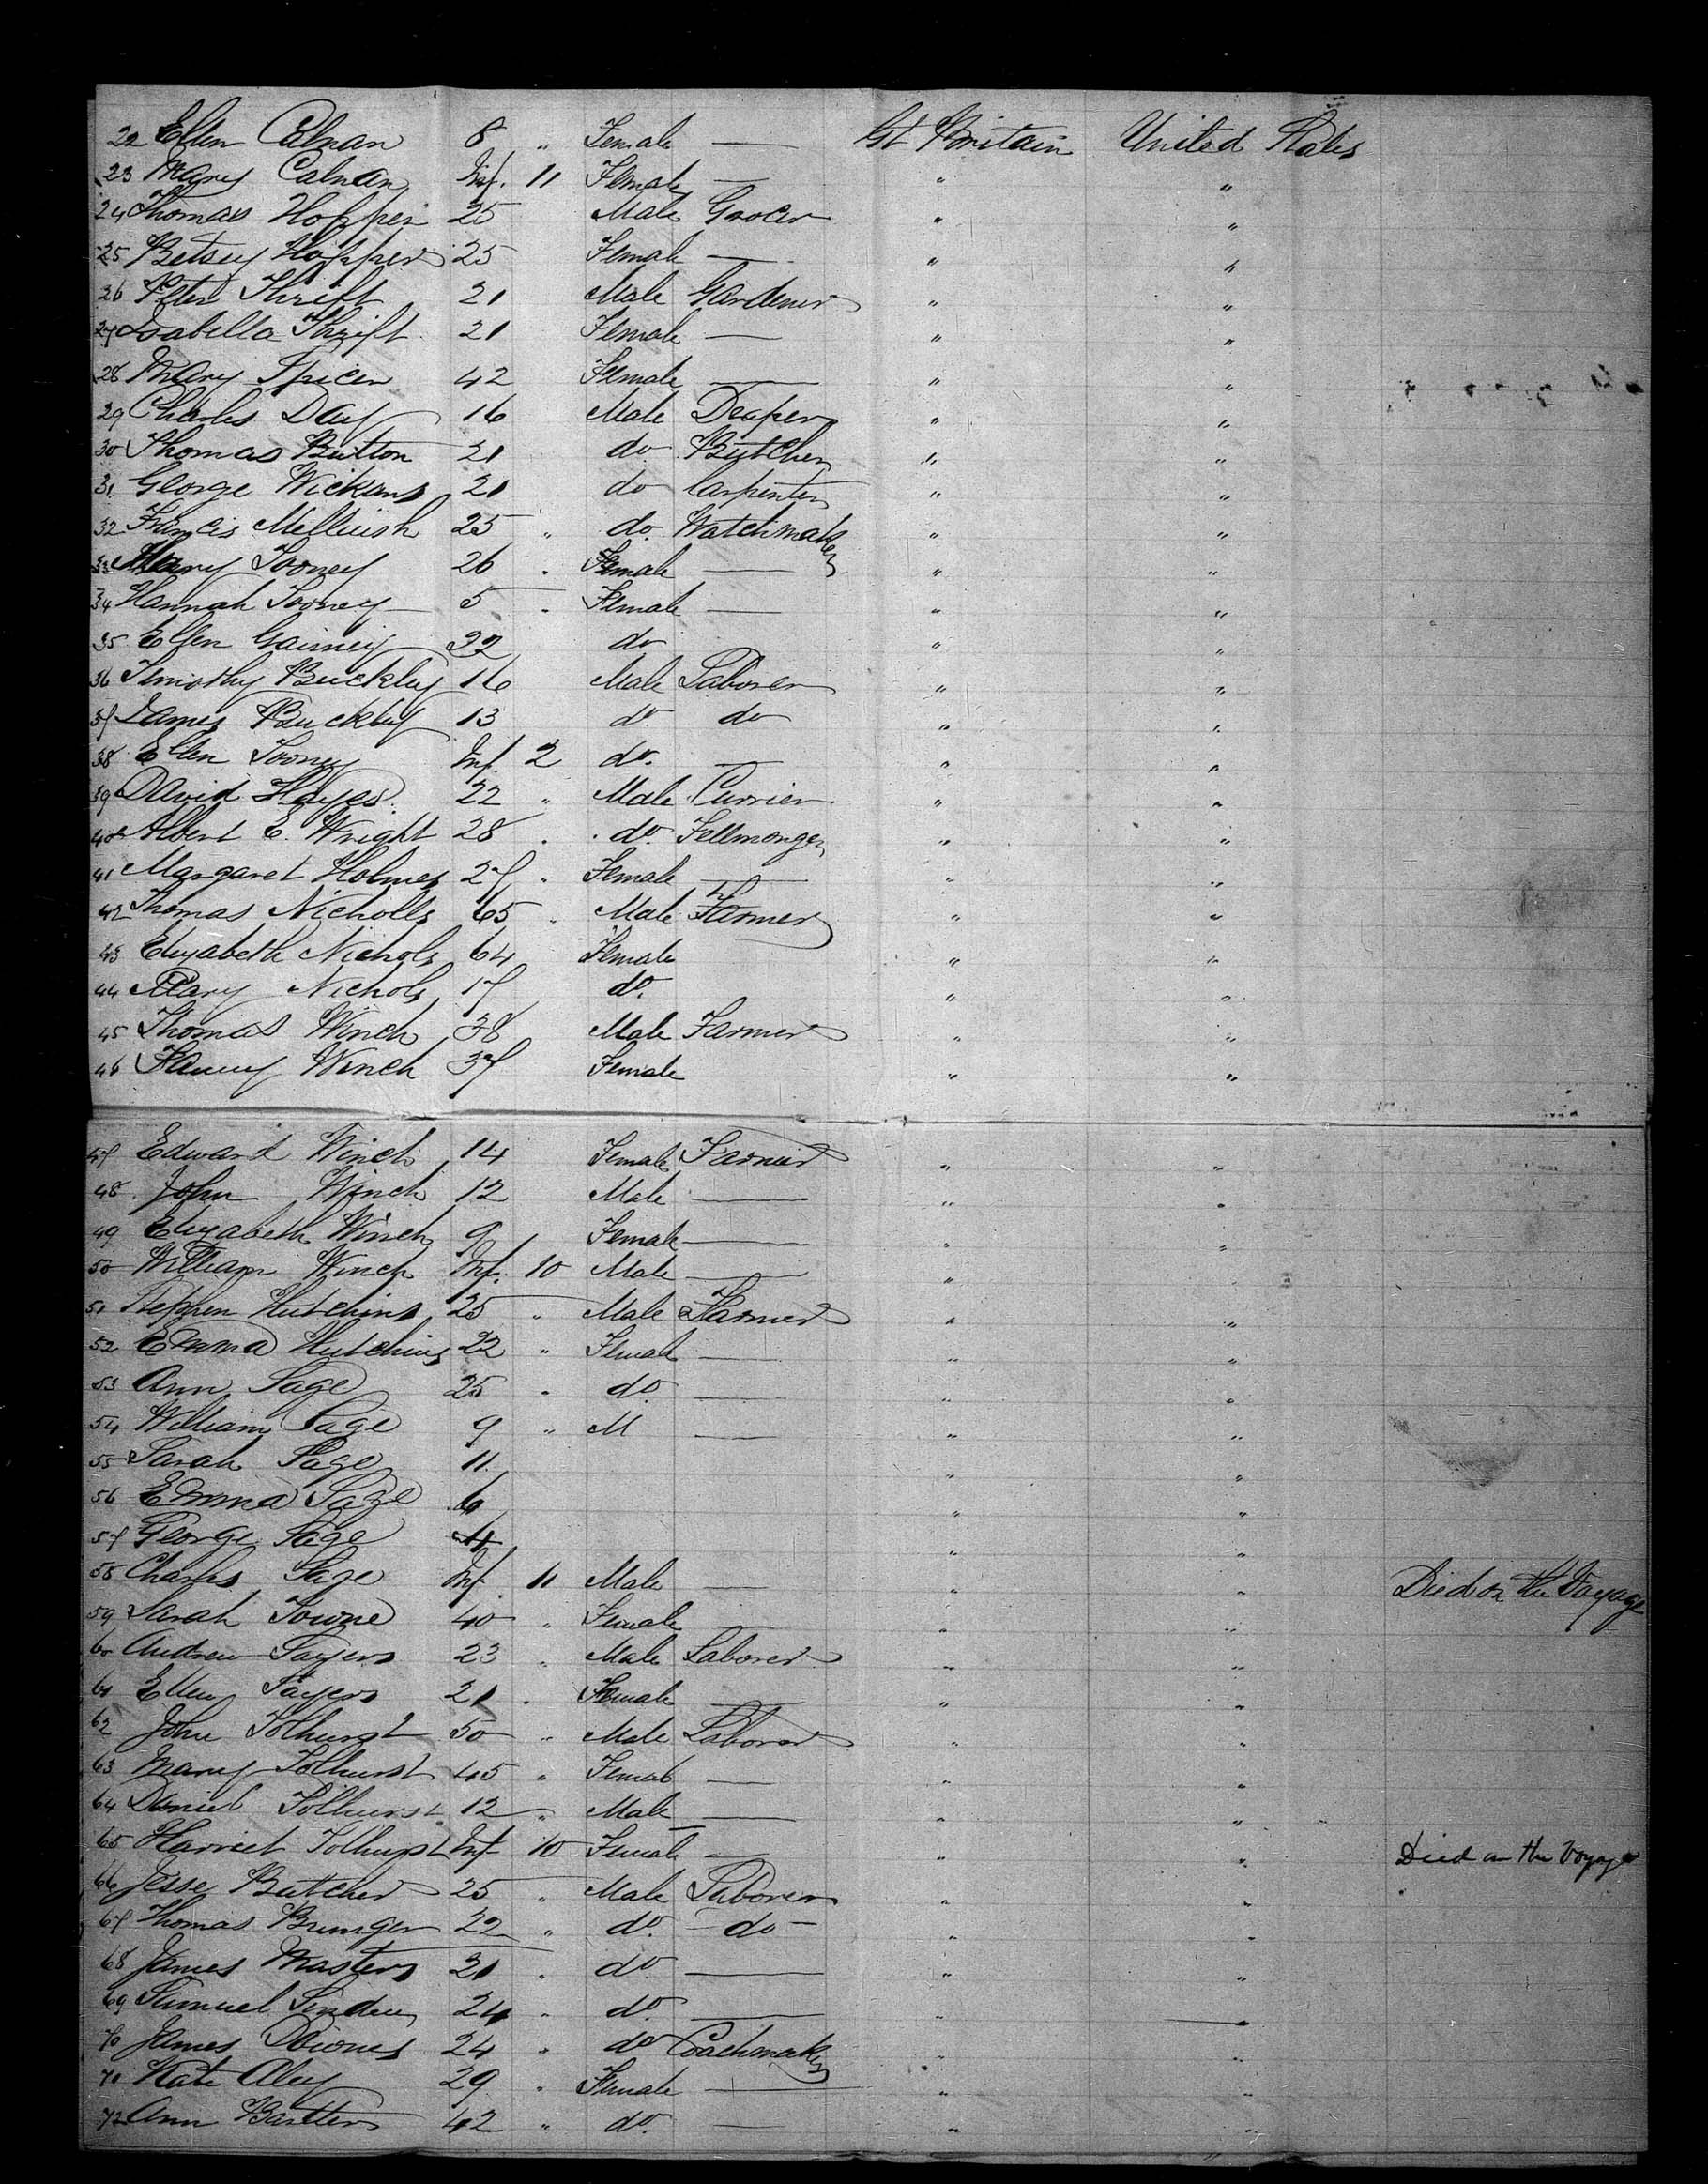 22 Ellen Calnan 8 " Female — Gt Britain United States
23 Mary Calnan Inf. 11 Female — " "
24 Thomas Hopper 25 Male Grocer " "
25 Betsey Hopper 25 Female — " "
26 Peter Thrift 21 Male Gardener " "
27 Isabella Thrift 21 Female — " "
28 Mary Spicer 42 Female — " "
29 Charles Day 16 Male Draper " "
30 Thomas Button 21 do Butcher " "
31 George Wickans 21 do Carpenter " "
32 Francis Melluish 25 " do. Watchmaker " "
33 Mary Tooney 26 " Female — " "
34 Hannah Tooney 5 " Female — " "
35 Ellen 32 do " "
36 Timothy Buckley 16 Male Laborer " "
37 James Buckley 13 do do " "
38 Ellen Tooney Inf. 2 do. — " "
39 David Hayes 22 " Male Currier " "
40 Albert E. Wright 28 " do. Fellmonger " "
41 Margaret Holmes 27 " Female — " "
42 Thomas Nicholls 65 " Male Farmer " "
43 Elizabeth Nichols 64 Female " "
44 Mary Nichols 17 do. " "
45 Thomas Winch 38 Male Farmer " "
46 Fanny Winch 37 Female " "
47 Edward Winch 14 Female Farmer " "
48 John Winch 12 Male — " "
49 Elizabeth Winch 9 Female — " "
50 William Winch Inf. 10 Male — " "
51 Stephen Hutchins 25 " Male Farmer " "
52 Emma Hutchins 22 " Female — " "
53 Ann Sage 25 " do — " "
54 William Sage 9 " M — " "
55 Sarah Sage 11 " "
56 Emma Sage 6 " "
57 George Sage 4 " "
58 Charles Sage Inf. 11 Male — " " Died on the Voyage
59 Sarah Towne 40 " Female — " "
60 Andrew Sayers 23 " Male Laborer " "
61 Ellen Sayers 21 " Female — " "
62 John Tolhurst 50 " Male Laborer " "
63 Mary Tolhurst 45 " Female — " "
64 Daniel Tolhurst 12 " Male — " "
65 Harriet Tolhurst Inf 10 Female — " " Died on the Voyage
66 Jesse Butcher 25 " Male Laborer " "
67 Thomas Brunger 22 " do. do " "
68 James Masters 21 " do — " "
69 Samuel Sinden 24 " do. — " "
70 James 24 " do Coachmaker " "
71 Kate Aley 29 " Female — " "
72 Ann 42 " do. — " "